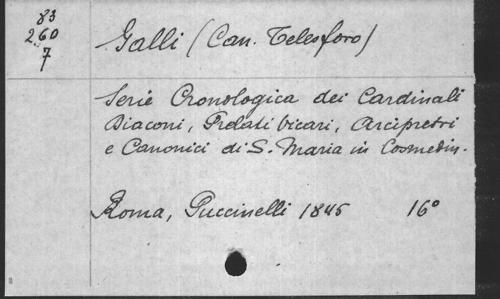 83
260
7
Galli (Can. Telesforo)
Serie Cronologica dei Cardinali
Diaconi, Prelati Vicari, Arcipretri
e Canonici di S. Maria in Cosmedin.
Roma, Puccinelli 1845 16°